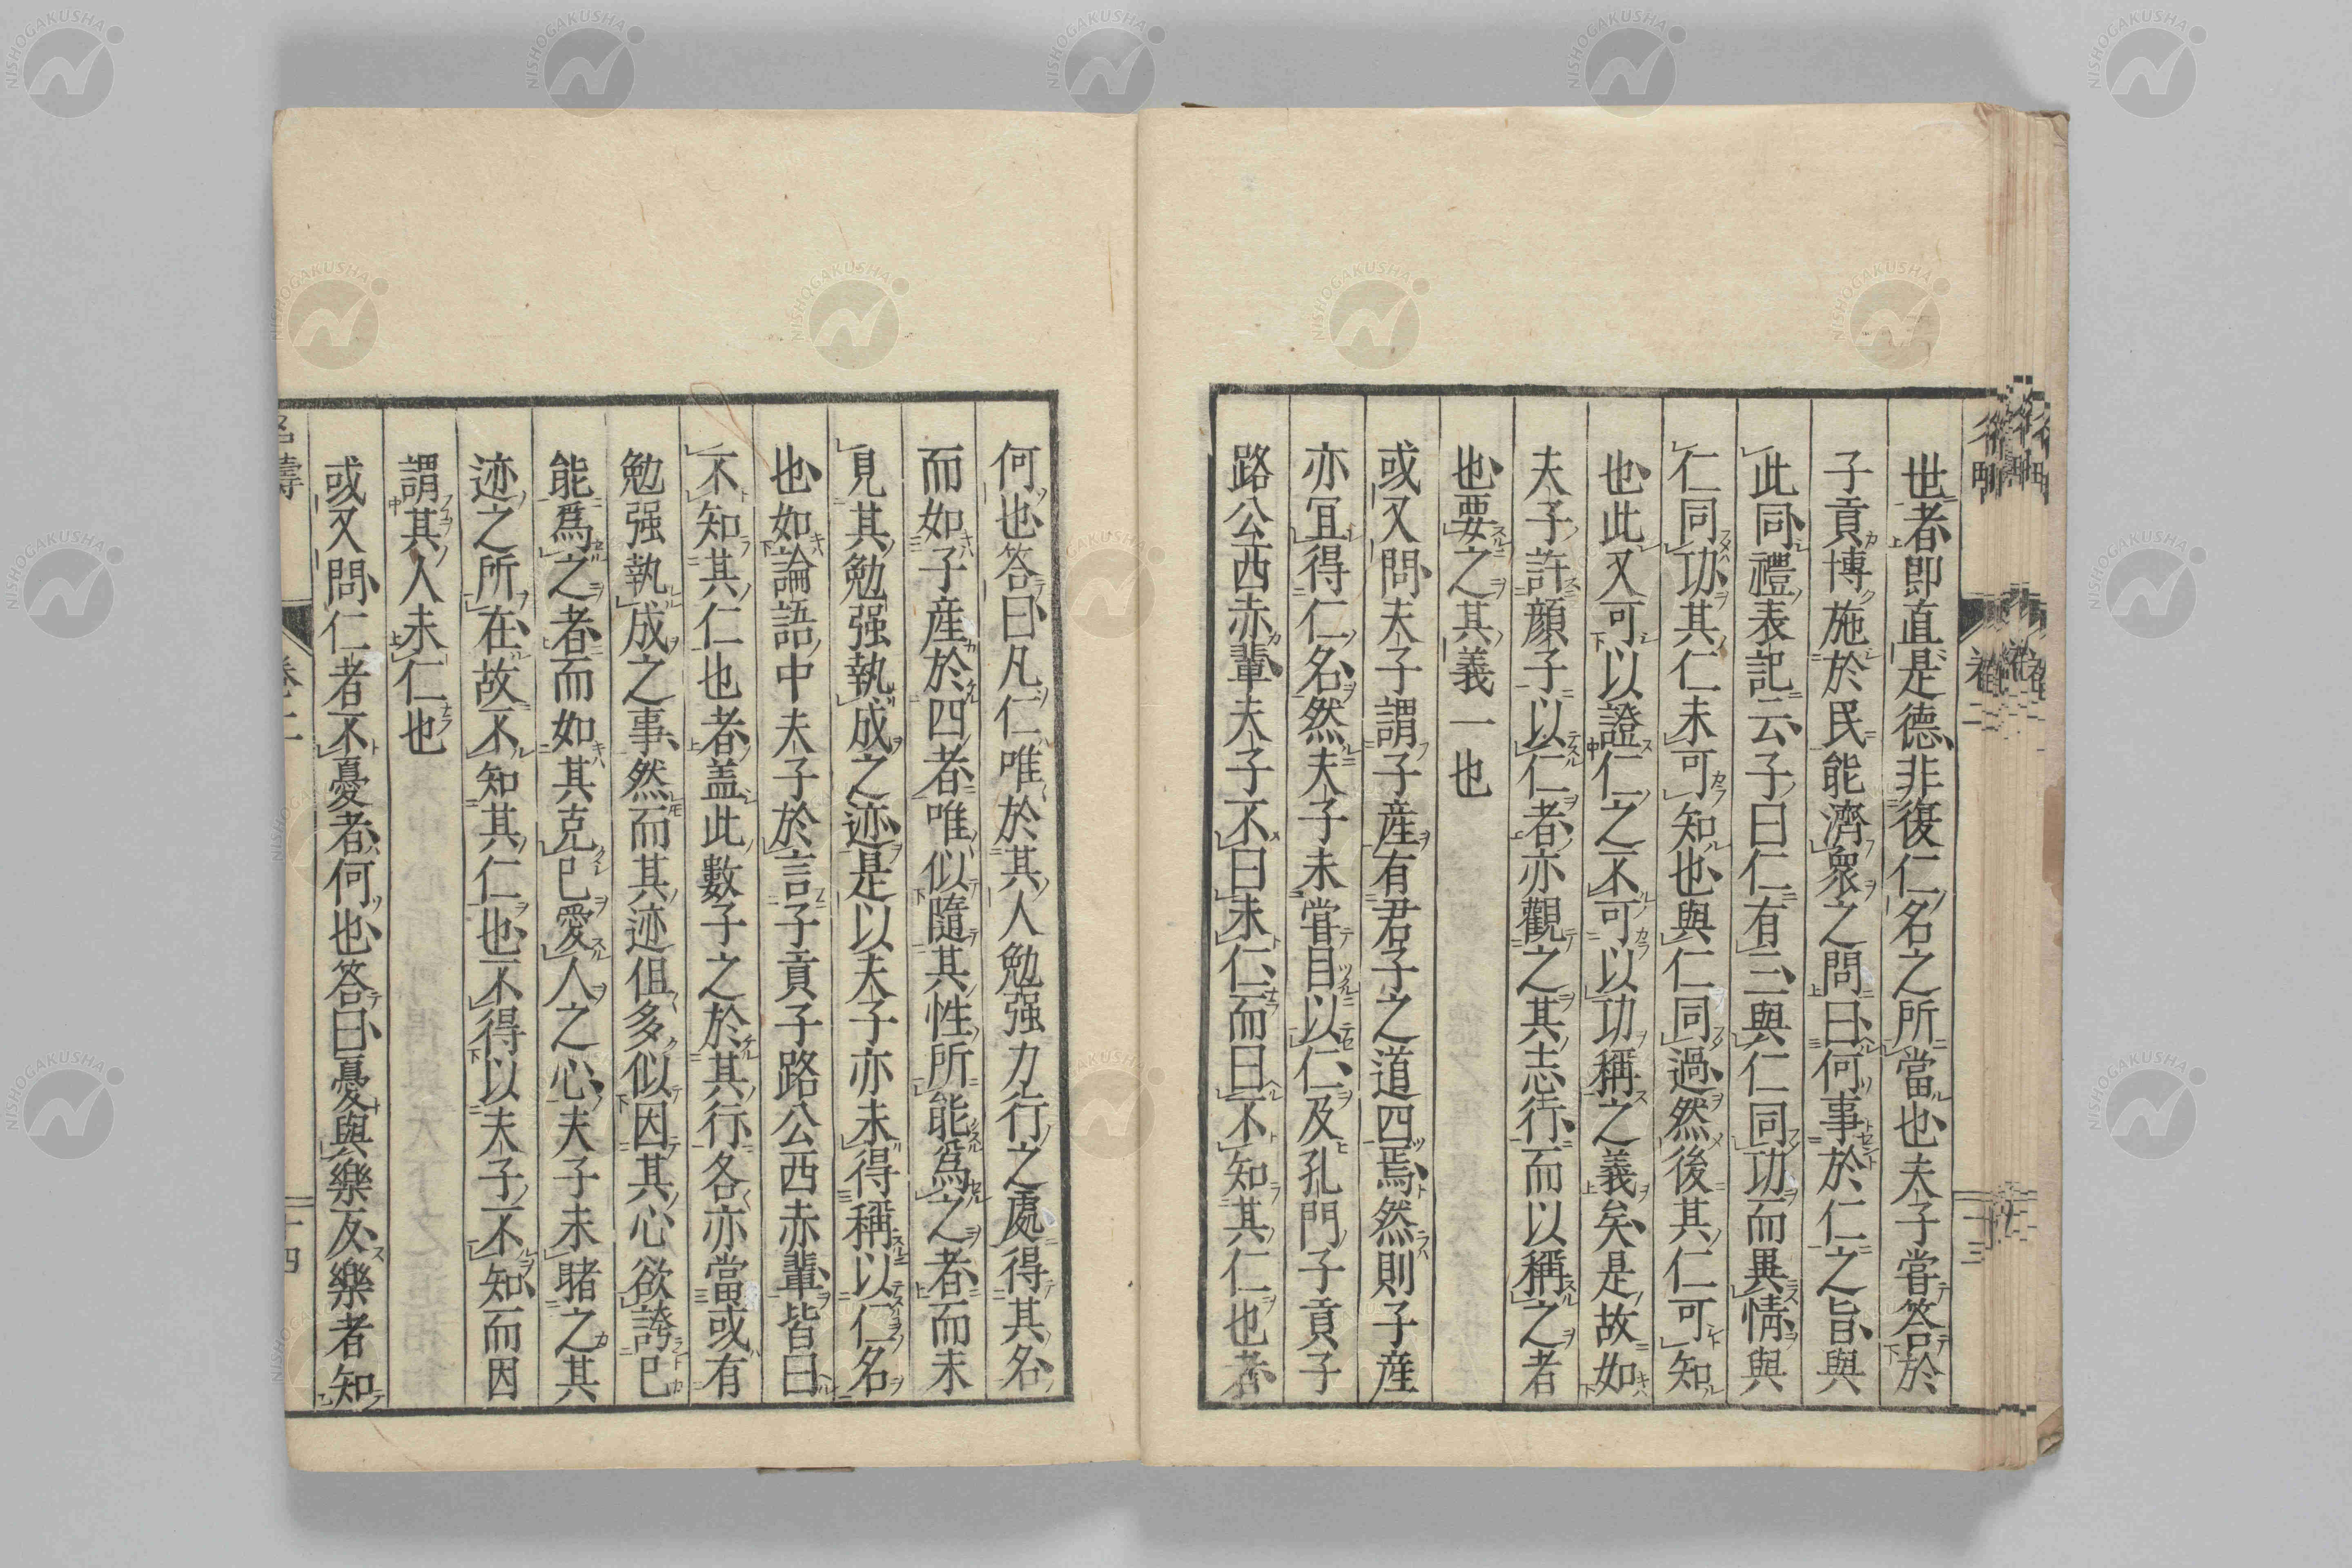 世者即直是德非復仁名之所當也夫子嘗答於
子貢博施於民能濟衆之問曰何事於仁之旨與
此同禮表記云子曰仁有三與仁同功而異情與
仁同功其仁未可知也與仁同過然後其仁可知
也此又可以證仁之不可以功稱之義矣是故如
夫子許顏子以仁者亦觀之其志行而以稱之者
也要之其義一也
或又問夫子謂子產有君子之道四焉然則子產
亦宜得仁名然夫子未嘗目以仁及孔門子貢子
路公西赤輩夫子不曰未仁而曰不知其仁也者
何也答曰凡仁唯於其人勉强力行之處得其名
而如子產於四者唯似隨其性所能爲之者而未
見其勉强執成之迹是以夫子亦未得稱以仁名
也如論語中夫子於言子貢子路公西赤輩皆曰
不知其仁也者蓋此數子之於其行各亦當或有
勉强執成之事然而其迹但多似因其心欲誇己
能爲之者而如其克己愛人之心夫子未睹之其
迹之所在故不知其仁也不得以夫子不知而因
謂其人未仁也
或又問仁者不憂者何也答曰憂與樂反樂者知
名疇
卷二
十四
NISHOGAKUSHA